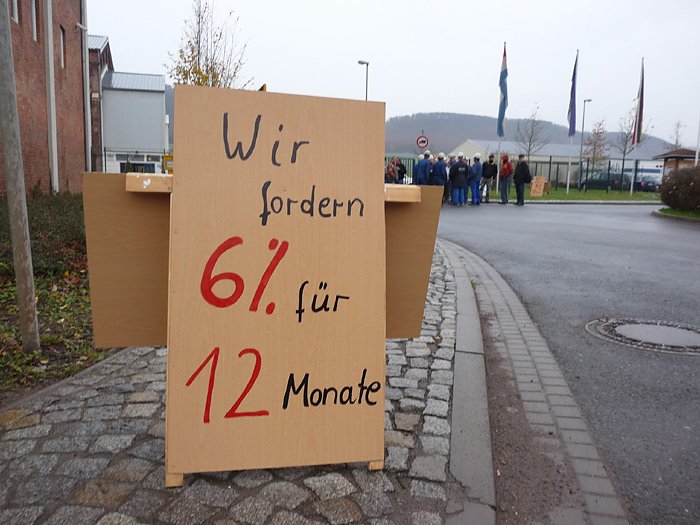 Wir
fordern
6% für
12 Monate